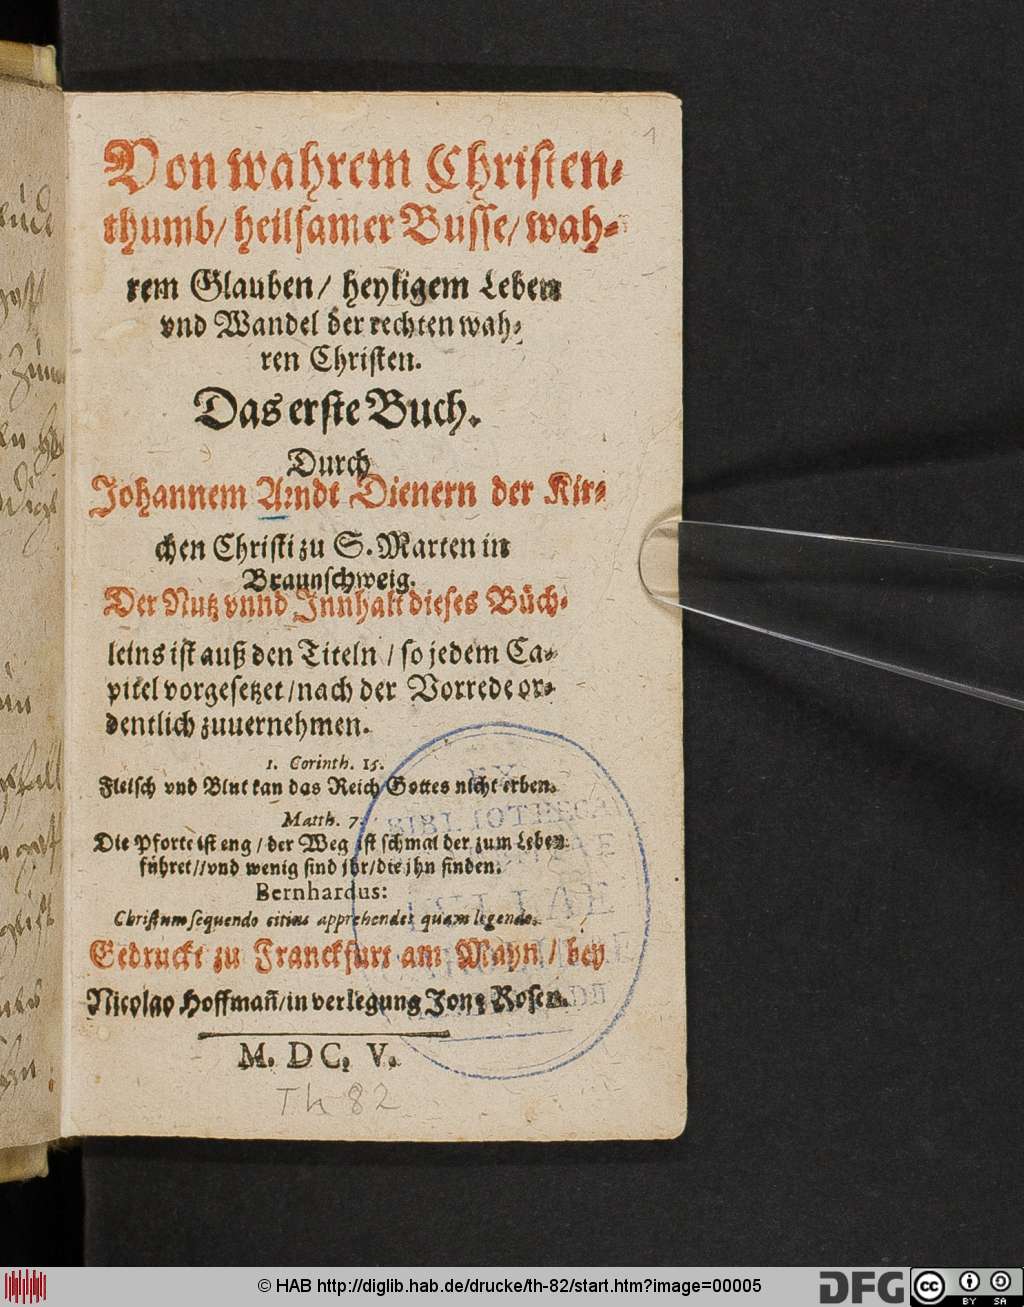 1
Von wahrem Christen-
thumb/ heilsamer Busse/ wah-
rem Glauben/ heyligem Leben
vnd Wandel der rechten wah-
ren Christen.
Das erste Buch.
Durch
Johannem Arndt Dienern der Kir-
chen Christi zu S. Marten in
Braunschweig.
Der Nutz vnnd Innhalt dieses Büch-
leins ist auß den Titeln / so jedem Ca-
pitel vorgesetzet / nach der Vorrede or-
dentlich zuuernehmen.
1. Corinth. 15.
Fleisch vnd Blut kan das Reich Gottes nicht erben.
Matth. 7.
Die Pforte ist eng / der Weg ist schmal der zum Leben
führet // vnd wenig sind jhr / die jhn finden.
Bernhardus:
Christum sequendo citius apprehendes quam legendo.
Gedruckt zu Franckfurt am Mayn / bey
Nicolao Hoffmañ / in verlegung Jong Rosen.
M. DC. V.
Th 82
© HAB http://diglib.hab.de/drucke/th-82/start.htm?image=00005
DFG
cc
BY SA